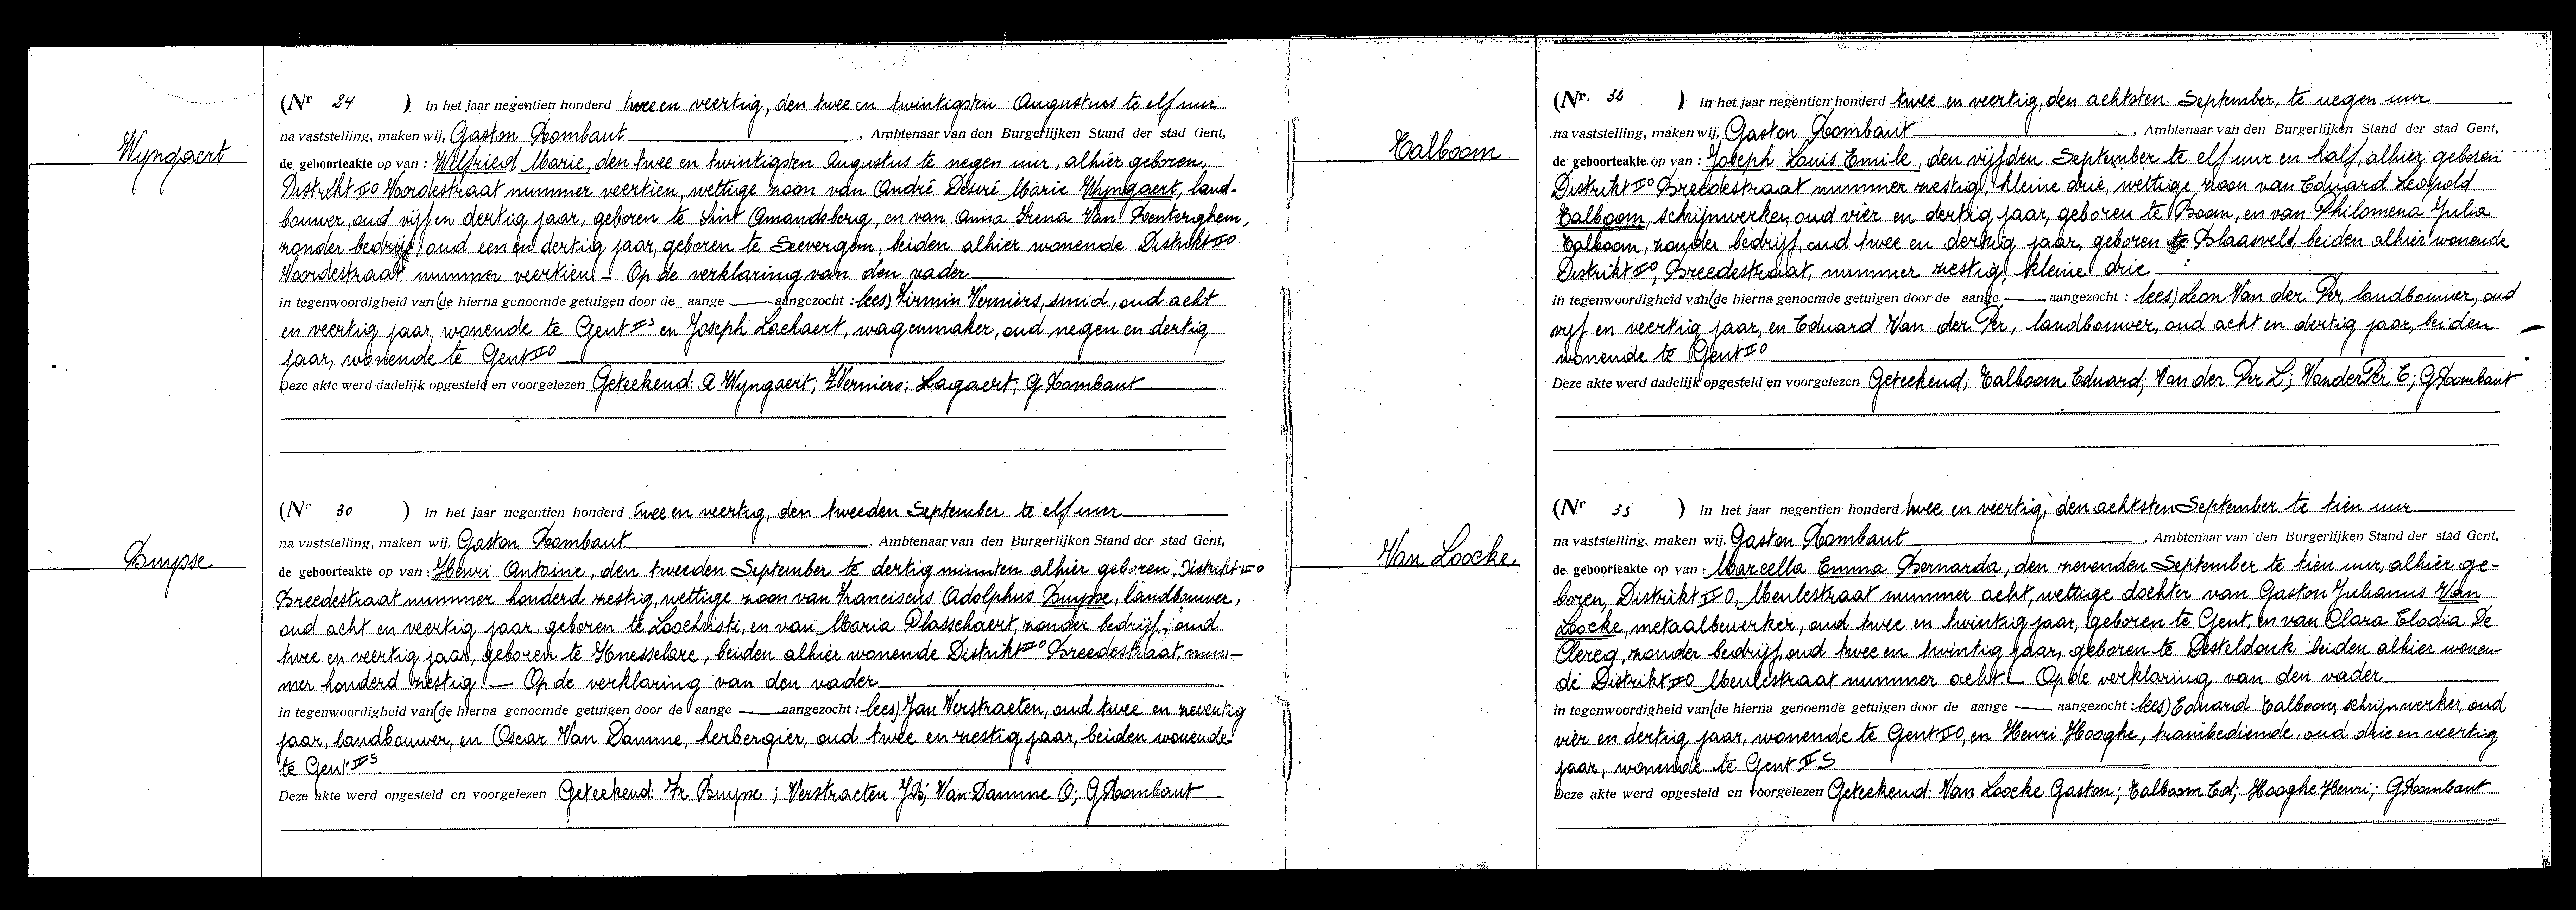 Wyngaert
(Nr 24 ) In het jaar negentien honderd twee en veertig, den twee en twintigsten Augustus te elf uur
na vaststelling, maken wij, Gaston Rombaut , Ambtenaar van den Burgerlijken Stand der stad Gent,
de geboorteakte op van : Wilfried Marie, den twee en twintigsten Augustus te negen uur, alhier geboren,
Distrikt II O Voordestraat nummer veertien, wettige zoon van André Désiré Marie Wyngaert, land-
bouwer, oud vijf en dertig jaar, geboren te Sint Amandsberg, en van Anna Irena Van Renterghem,
zonder bedrijf, oud een en dertig jaar, geboren te Seevergem, beiden alhier wonende Distrikt II O
Voordestraat nummer veertien — Op de verklaring van den vader
in tegenwoordigheid van (de hierna genoemde getuigen door de aange — aangezocht : lees) Firmin Verniers, smid, oud acht
en veertig jaar, wonende te Gent II S en Joseph Lochaert, wagenmaker, oud negen en dertig
jaar, wonende te Gent II O
Deze akte werd dadelijk opgesteld en voorgelezen Geteekend: A Wyngaert; F Verniers; Lagaert; G Rombaut
Buysse
(Nr 30 ) In het jaar negentien honderd twee en veertig, den tweeden September te elf uur
na vaststelling, maken wij, Gaston Rombaut , Ambtenaar van den Burgerlijken Stand der stad Gent,
de geboorteakte op van : Henri Antoine, den tweeden September te dertig minuten alhier geboren, Distrikt II O
Breedestraat nummer honderd zestig, wettige zoon van Franciscus Adolphus Buysse, landbouwer,
oud acht en veertig jaar, geboren te Loochristi, en van Maria Plasschaert, zonder bedrijf, oud
twee en veertig jaar, geboren te Knesselare, beiden alhier wonende Distrikt II O Breedestraat, num-
mer honderd zestig. — Op de verklaring van den vader
in tegenwoordigheid van (de hierna genoemde getuigen door de aange — aangezocht : lees) Jan Verstraeten, oud twee en zeventig
jaar, landbouwer, en Oscar Van Damme, herbergier, oud twee en zestig jaar, beiden wonende
te Gent II S.
Deze akte werd opgesteld en voorgelezen Geteekend: Fr Buysse ; Verstraeten J B; Van Damme O; G Rombaut
Calboom
(Nr. 32 ) In het jaar negentien honderd twee en veertig, den achtsten September, te negen uur
na vaststelling, maken wij, Gaston Rombaut , Ambtenaar van den Burgerlijken Stand der stad Gent,
de geboorteakte op van : Joseph Louis Emile, den vijfden September te elf uur en half, alhier geboren
Distrikt II O Breedestraat nummer zestig, kleine drie, wettige zoon van Eduard Leopold
Calboom, schrijnwerker, oud vier en dertig jaar, geboren te Boom, en van Philomena Julia
Calboom, zonder bedrijf, oud twee en dertig jaar, geboren te Blaasveld, beiden alhier wonende
Distrikt II O, Breedestraat, nummer zestig, kleine drie
in tegenwoordigheid van (de hierna genoemde getuigen door de aange — aangezocht : lees) Leon Van der Per, landbouwer, oud
vijf en veertig jaar, en Eduard Van der Per, landbouwer, oud acht en dertig jaar, beiden
wonende te Gent II O
Deze akte werd dadelijk opgesteld en voorgelezen Geteekend; Calboom Eduard; Van der Per L; Van der Per E; G Rombaut
Van Loocke
(Nr 33 ) In het jaar negentien honderd twee en veertig, den achtsten September te tien uur
na vaststelling, maken wij, Gaston Rombaut , Ambtenaar van den Burgerlijken Stand der stad Gent,
de geboorteakte op van : Marcella Emma Bernarda, den zevenden September te tien uur, alhier ge-
boren, Distrikt II O, Meulestraat nummer acht, wettige dochter van Gaston Julianus Van
Loocke, metaalbewerker, oud twee en twintig jaar, geboren te Gent, en van Clara Elodia De
Clercq, zonder bedrijf, oud twee en twintig jaar, geboren te Desteldonk beiden alhier wonen-
de Distrikt II O Meulestraat nummer acht — Op de verklaring van den vader
in tegenwoordigheid van (de hierna genoemde getuigen door de aange — aangezocht : lees) Eduard Calboom, schrijnwerker, oud
vier en dertig jaar, wonende te Gent II O, en Henri Hooghe, trambediende, oud drie en veertig
jaar, wonende te Gent II S
Deze akte werd opgesteld en voorgelezen Geteekend: Van Loocke Gaston; Calboom Ed; Hooghe Henri; G Rombaut